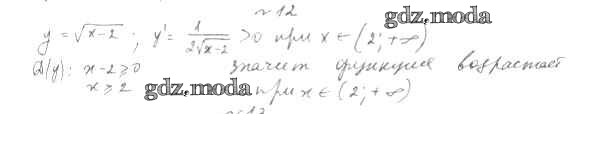 № 12
gdz.moda
y = √x-2 ; y' = 1/2√x-2 >0 при x ∈ (2; +∞)
D(y): x-2≥0 значит функция возрастает
x ≥ 2 gdz.moda при x ∈ (2; +∞)